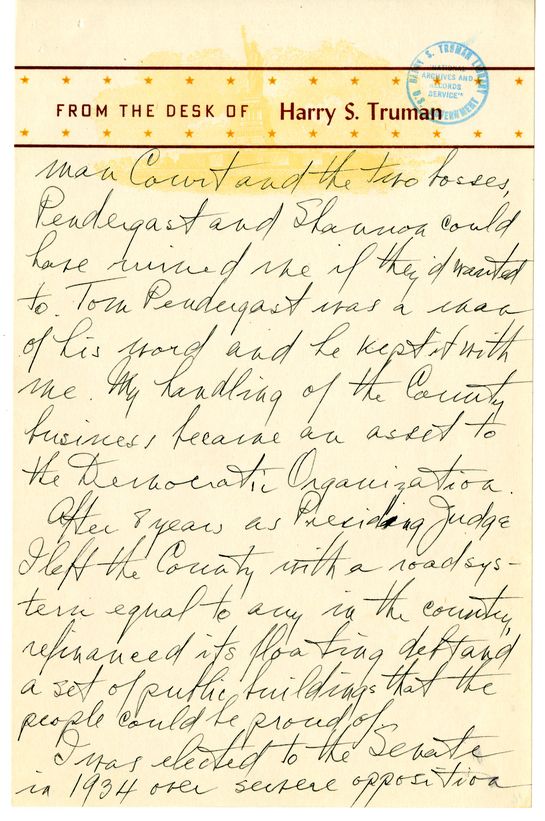 HARRY S. TRUMAN LIBRARY
NATIONAL
ARCHIVES AND
RECORDS
SERVICE
U.S. GOVERNMENT
FROM THE DESK OF Harry S. Truman
man Court and the two bosses,
Pendergast and Shannon could
have ruined me if they'd wanted
to. Tom Pendergast was a man
of his word and he kept it with
me. My handling of the County
business became an asset to
the Democratic Organization.
After 8 years as Presiding Judge
I left the County with a road sys-
tem equal to any in the country,
refinanced its floating debt and
a set of public buildings that the
people could be proud of.
I was elected to the Senate
in 1934 over severe opposition